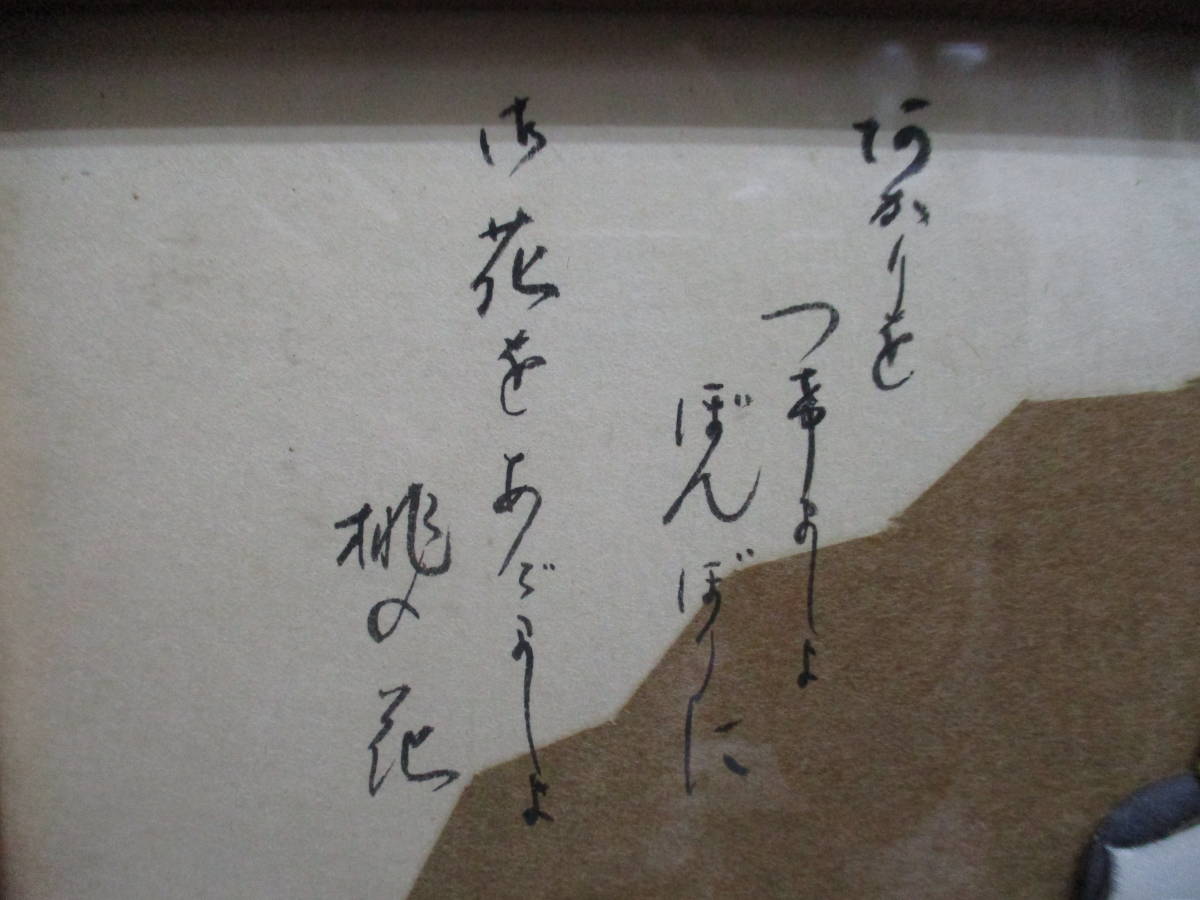 阿かりを
つ希ましょ
ぼんぼりに
御花をあげましょ
桃の花